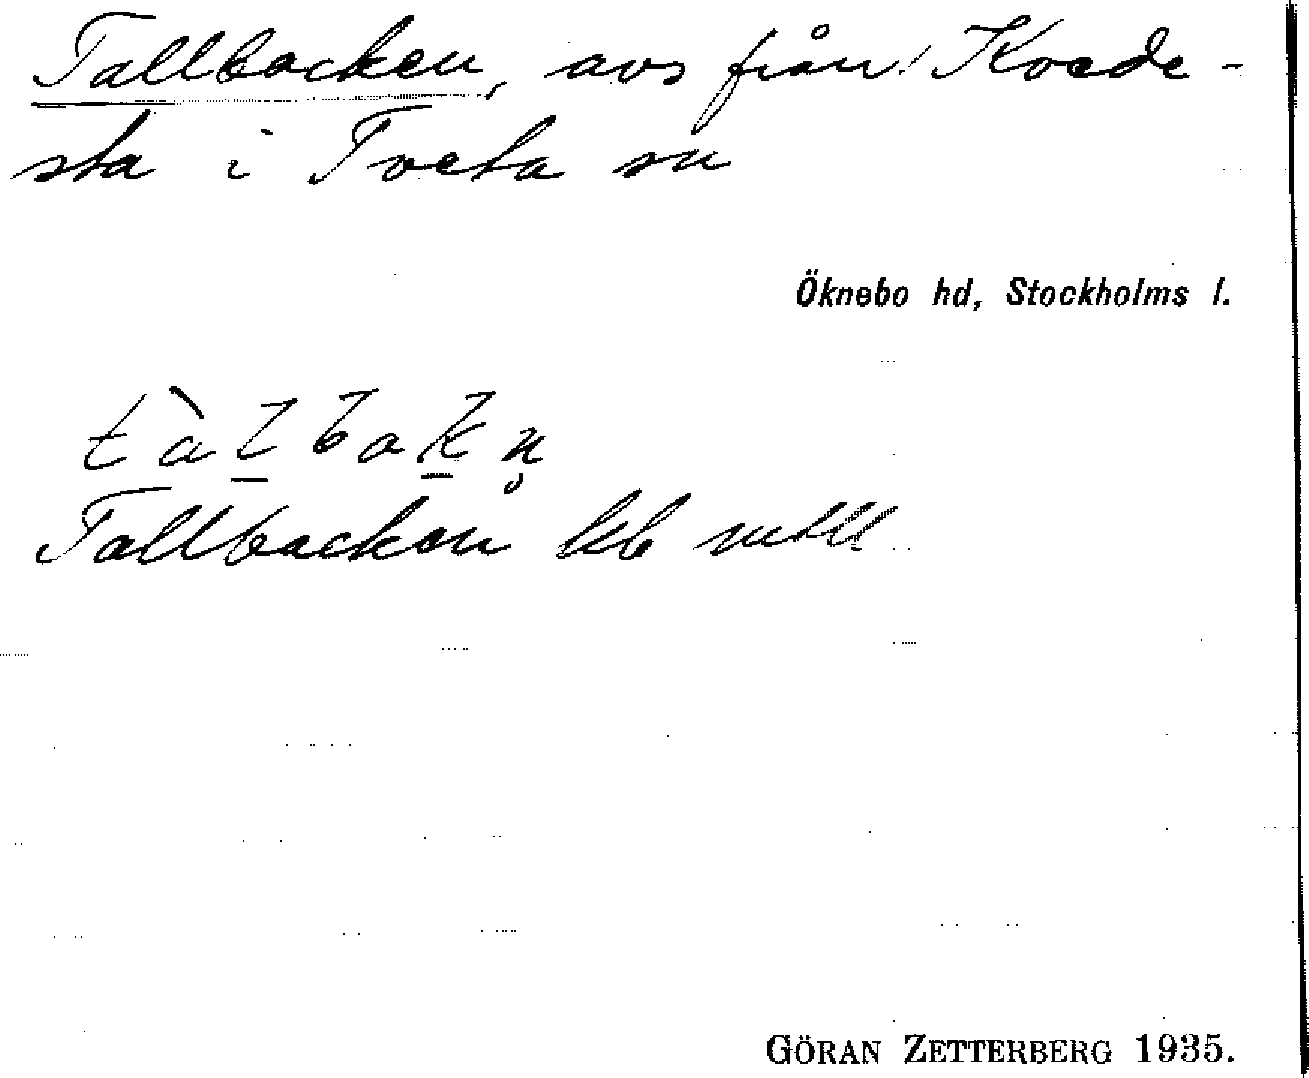 Tallbacken, avs från Kvede-
sta i Tveta sn
Öknebo hd, Stockholms l.
tàl̠bak̠n̥
Tallbacken lkb mtll
GÖRAN ZETTERBERG 1935.